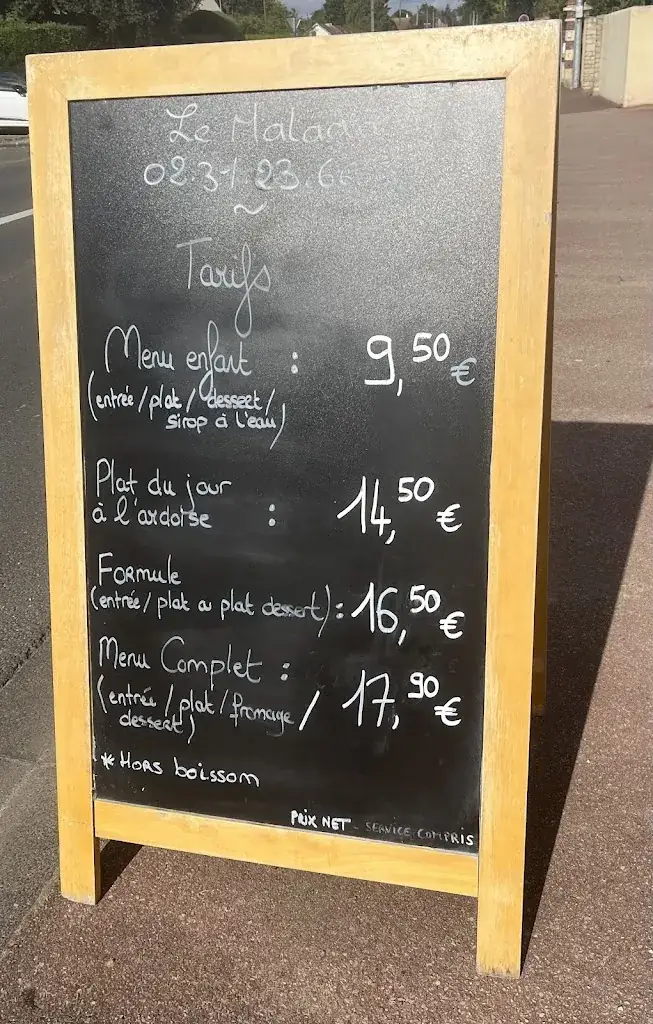 Le
02.31.23.6
~
Tarifs
Menu enfant : 9,50 €
(entrée / plat / dessert /
sirop à l'eau)
Plat du jour
à l'ardoise : 14,50 €
Formule
(entrée / plat ou plat dessert) : 16,50 €
Menu Complet :
(entrée / plat / fromage / 17,90 €
dessert)
* Hors boisson
PRIX NET - SERVICE COMPRIS